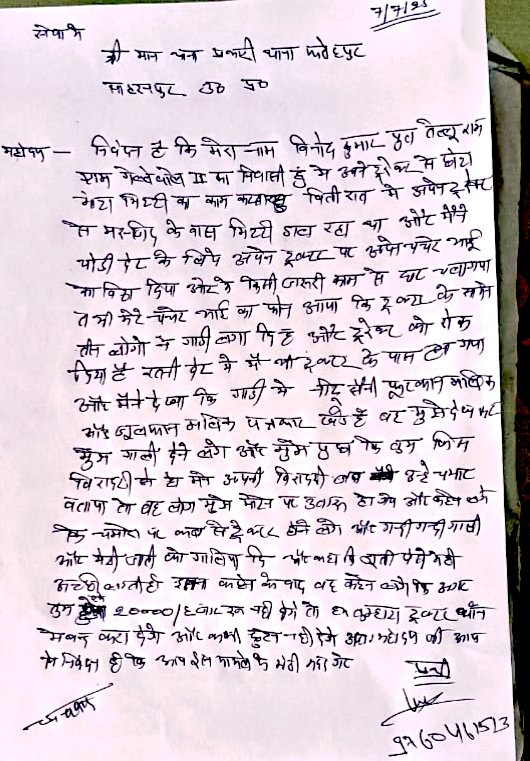 7/7/25
सेवा में
श्री मान थाना प्रभारी थाना फतेहपुर
साहरनपुर उ० प्र०
महोदय — निवेदन है कि मेरा नाम विनोद कुमार पुत्र तेलूराम
ग्राम का निवासी हूं मै अपने ट्रेक्टर से छोटा
मोटा मिट्टी का काम करता हूं बिती रात मे अपने ट्रेक्टर
से मस्जिद के पास मिट्टी डाल रहा था और मैने
थोडी देर के लिये अपने ट्रेक्टर पर अपने चचेरे भाई
को बिठा दिया और मै किसी जरुरी काम से घर चला गया
तभी मेरे चचेरे भाई का फोन आया कि ट्रेक्टर के सामने
तीन लोगो ने गाडी लगा दि है और ट्रेक्टर को रोक
दिया है इतनी देर मे मै भी ट्रेक्टर के पास आ गया
और मैने देखा कि गाडी मे सैनी फुरकान मलिक
और जुलफान मलिक पत्रकार खडे है वह मुझे देख कर
मुझे गाली देने लगे और मुझे पुछा कि तुम किस
बिरादरी के हो मैने अपनी बिरादरी उन्हे चमार
बताया तो वह लोग मुझे उतारू हो गये और कहने लगे
कि चमारो पर कब से ट्रेक्टर होने लगे और गन्दी गन्दी गाली
और मेरी जाती को गालिया दि और कहा कि
अच्छी लगती है इतना कहने के बाद वह कहने लगे कि अगर
तुम हमे 20000/ हजार रू नही दोगे तो हम तुम्हारा ट्रेक्टर थाने
मे बन्द करा देगे और कभी छुटने नही देगे अतः महोदय जी आप
से निवेदन है कि आप इस मामले मे मेरी मदद करे
प्रार्थी
9760461513